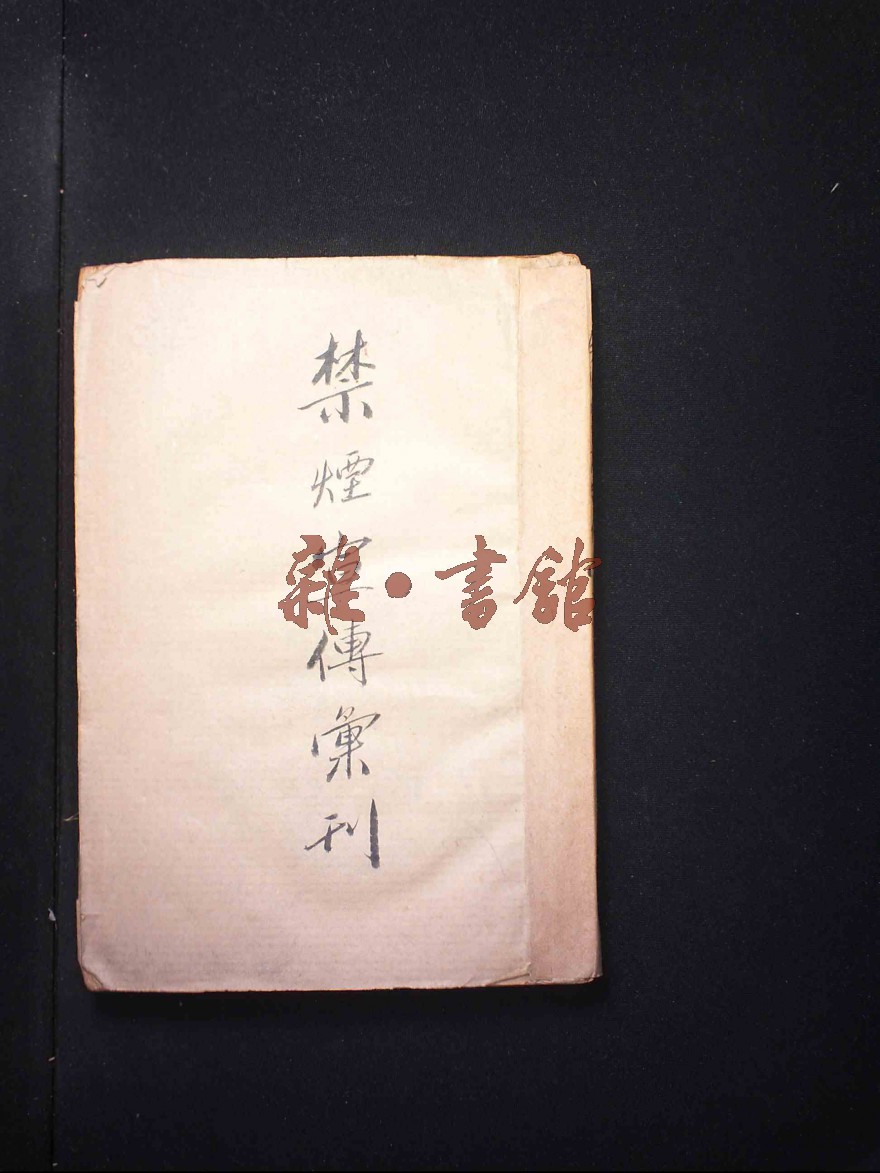 禁煙宣傳彙刊
雜·書館